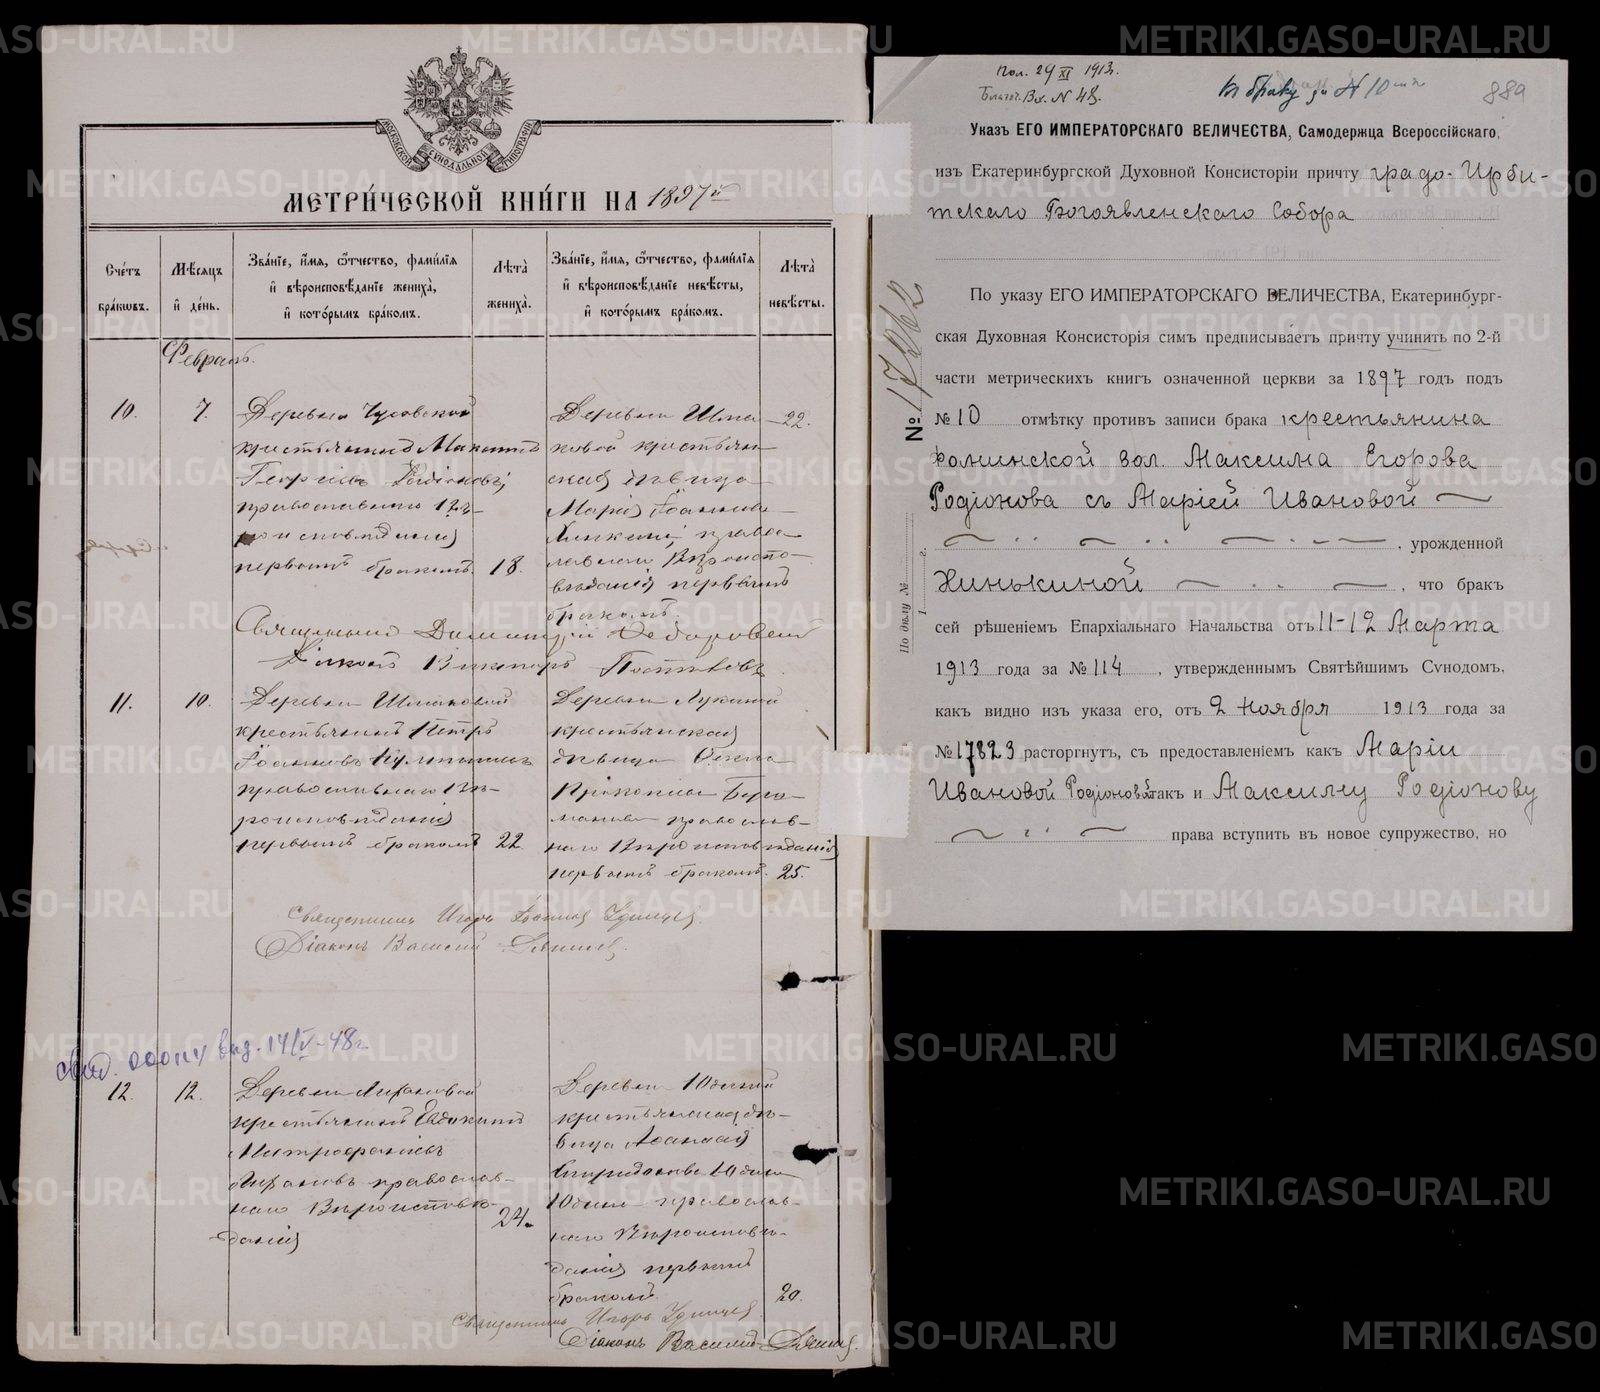 МОСКОВСКОЙ СѴНОДАЛЬНОЙ ТИПОГРАФІИ
МЕТРИ́ЧЕСКОЙ КНИ́ГИ НА 1897й
Сче́тъ бра́кѡвъ.
Мѣ́сяцъ и҆ де́нь.
Зва́ніе, и҆́мя, ѻ҆́тчество, фами́лія и҆ вѣроисповѣ́даніе жениха̀, и҆ кото́рымъ бра́комъ.
Лѣта̀ жениха̀.
Зва́ніе, и҆́мя, ѻ҆́тчество, фами́лія и҆ вѣроисповѣ́даніе невѣ́сты, и҆ кото́рымъ бра́комъ.
Лѣта̀ невѣ́сты.
Февраль.
10.
7.
Деревни Чусовской
крестьянинъ Максимъ
Георгіевъ Родіоновъ,
православнаго Вѣ-
роисповѣданія
первымъ бракомъ.
18.
Деревни Шма-
ковой крестьян-
ская дѣвица
Марія Іоаннова
Хинкина, право-
славнаго Вѣроиспо-
вѣданія первымъ
бракомъ
22.
Священникъ Димитрій
Діаконъ Викторъ
11.
10.
Деревни Шмаковой
крестьянинъ Петръ
Іоанновъ
православнаго Вѣ-
роисповѣданія
первымъ бракомъ
22.
Деревни
крестьянская
дѣвица
Прокопіева
православ-
наго Вѣроисповѣданія
первымъ бракомъ.
25.
Священникъ Игорь Іоанновъ Удинцев.
Діаконъ Василій
свид. вид. 14/V-48г.
12.
12.
Деревни
крестьянинъ Евдокимъ
Митрофаніевъ
православ-
наго Вѣроисповѣ-
данія
24.
Деревни Юдиной
крестьянская дѣ-
вица Аѳанасія
Спиридонова Юдина
Юдина православ-
наго Вѣроисповѣ-
данія первымъ
бракомъ.
20.
Священникъ Игорь Удинцев
Діаконъ Василій
Пол. 29 XI 1913г.
Благоч. Вх. N 48.
Къ браку за N 10
889
Указъ ЕГО ИМПЕРАТОРСКАГО ВЕЛИЧЕСТВА, Самодержца Всероссійскаго,
изъ Екатеринбургской Духовной Консисторіи причту градо-Ирби-
тскаго Богоявленскаго Собора
По указу ЕГО ИМПЕРАТОРСКАГО ВЕЛИЧЕСТВА, Екатеринбург-
ская Духовная Консисторія симъ предписываетъ причту учинить по 2-й
части метрическихъ книгъ означенной церкви за 1897 годъ подъ
№ 10 отмѣтку противъ записи брака крестьянина
Фоминской вол. Максима Егорова
Родіонова съ Маріей Ивановой
, урожденной
Хинькиной , что бракъ
сей рѣшеніемъ Епархіальнаго Начальства отъ 11-12 Марта
1913 года за № 114 , утвержденнымъ Святѣйшимъ Сѵнодомъ,
какъ видно изъ указа его, отъ 2 Ноября 1913 года за
№ 17823 расторгнутъ, съ предоставленіемъ какъ Маріи
Ивановой Родіоновой такъ и Максиму Родіонову
права вступить въ новое супружество, но
№ 17962
По дѣлу №
1 г.
METRIKI.GASO-URAL.RU